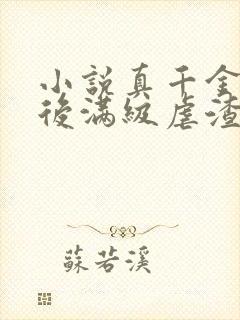 小說真千金
後滿級虐渣
蘇若溪